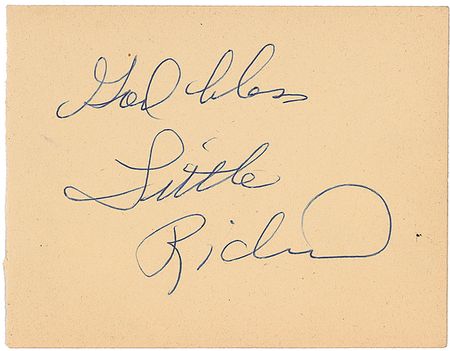 God bless
Little
Richard